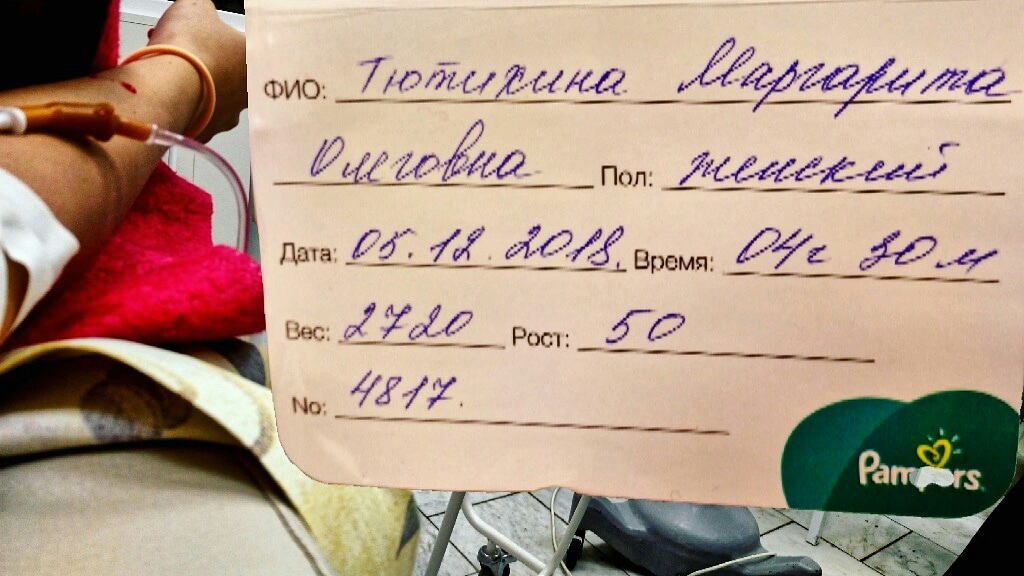 ФИО: Тютихина Маргарита
Олеговна Пол: женский
Дата: 05.12.2018. Время: 04ч 30м
Вес: 2720 Рост: 50
No: 4817.
Pampers